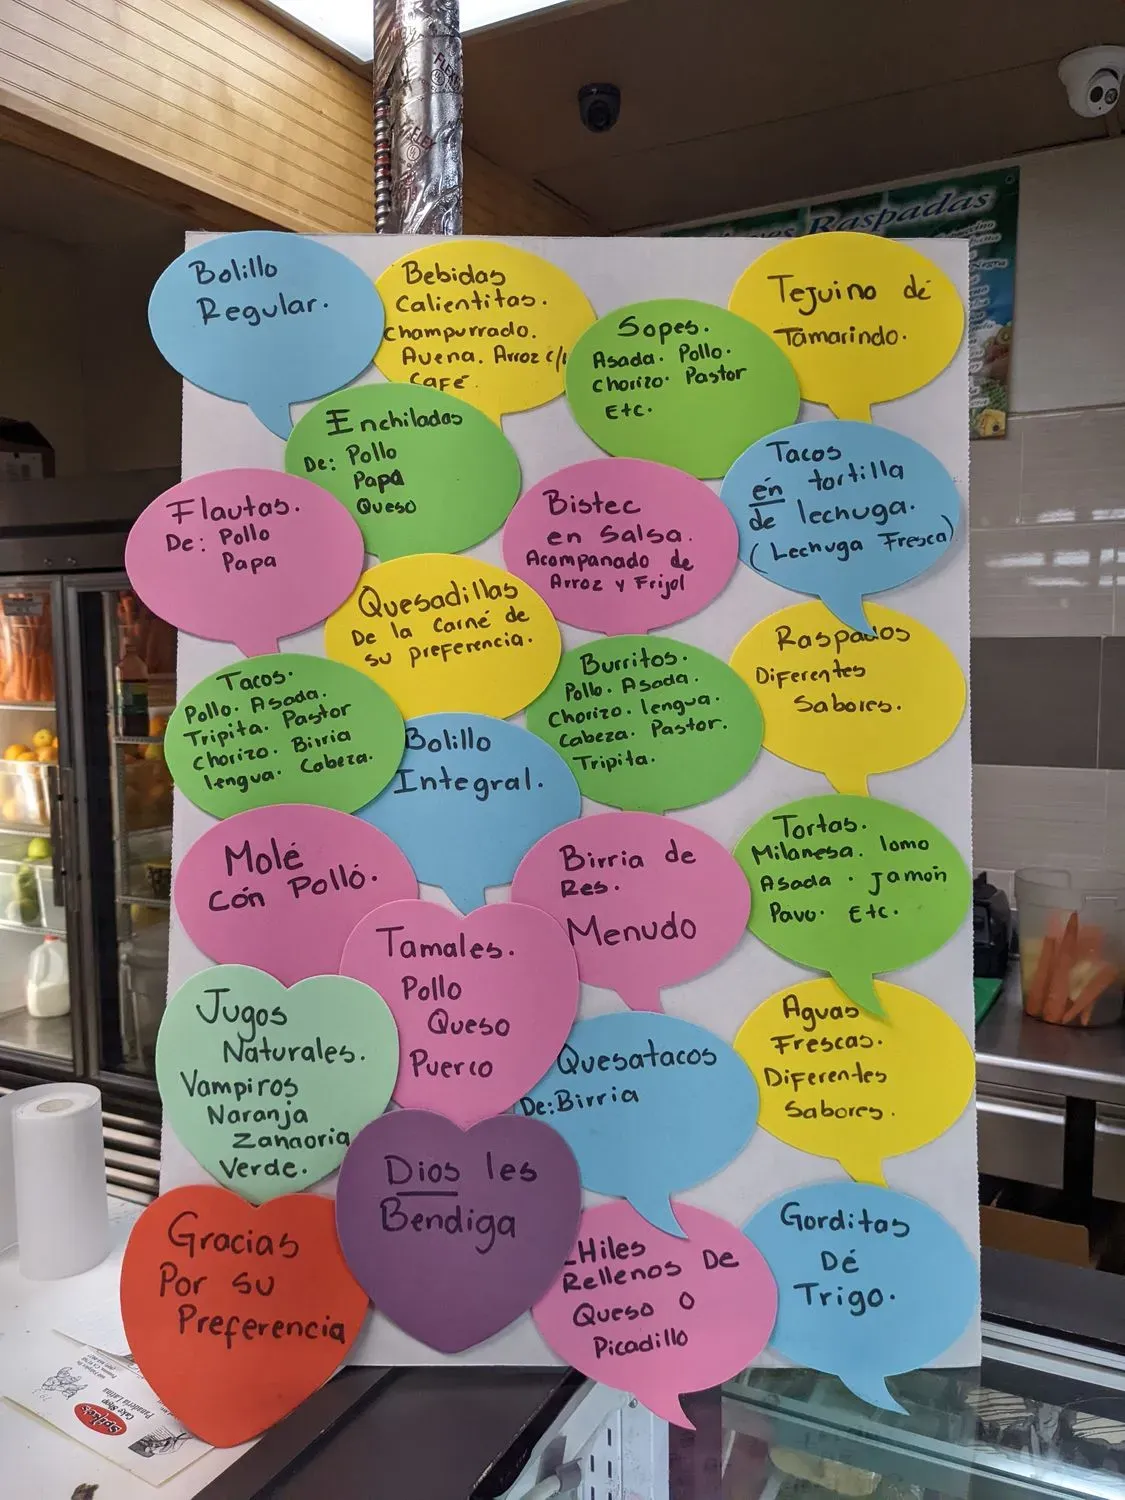 Raspadas
Bolillo
Regular.
Bebidas
Calientitas.
Champurrado.
Avena. Arroz c/l
Café.
Sopes.
Asada. Pollo.
Chorizo. Pastor
Etc.
Tejuino dé
Tamarindo.
Enchiladas
De: Pollo
Papa
Queso
Flautas.
De: Pollo
Papa
Bistec
en Salsa.
Acompanado de
Arroz y Frijol
Tacos
én tortilla
de lechuga.
(Lechuga Fresca)
Quesadillas
De la Carné de
su preferencia.
Raspados
Diferentes
Sabores.
Tacos.
Pollo. Asada.
Tripita. Pastor
Chorizo. Birria
lengua. Cabeza.
Bolillo
Integral.
Burritos.
Pollo. Asada.
Chorizo. lengua.
Cabeza. Pastor.
Tripita.
Molé
cón Polló.
Birria de
Res.
Menudo
Tortas.
Milanesa. lomo
Asada. Jamón
Pavo. Etc.
Tamales.
Pollo
Queso
Puerco
Jugos
Naturales.
Vampiros
Naranja
Zanaoria
Verde.
Quesatacos
De: Birria
Aguas
Frescas.
Diferentes
Sabores.
Dios les
Bendiga
Gracias
Por su
Preferencia
Hiles
Rellenos De
Queso o
Picadillo
Gorditas
Dé
Trigo.
Cake Shop
Panaderia Latina